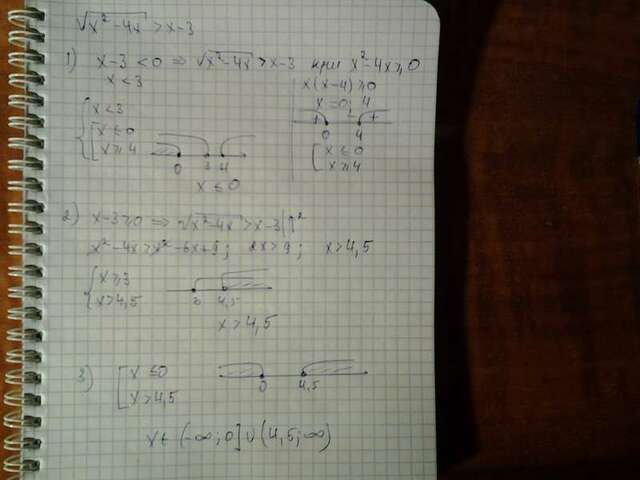 √x²-4x > x-3
1) x-3<0 ⇒ √x²-4x > x-3 при x²-4x≥0
x<3
x(x-4)≥0
x=0; 4
+ - +
0 4
[x≤0
x≥4
{x<3
[x≤0
x≥4
0 3 4
x≤0
2) x-3≥0 ⇒ √x²-4x > x-3 |↑²
x²-4x>x²-6x+9; 2x>9; x>4,5
{x≥3
x>4,5
3 4,5
x>4,5
3) [x≤0
x>4,5
0 4,5
x∈(-∞;0]∪(4,5;∞)